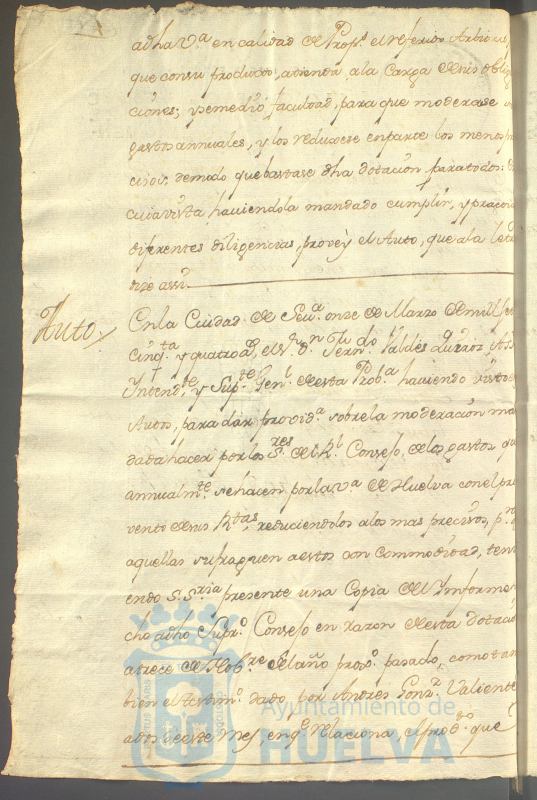 adha V.ª en calidad de Prop.s el referido Arbio
que con su producto, atienda ala Carga de sus oblig
ciones; y se me dio facultad, para que moderase
gastos annuales, y los reduxese en parte los menos pre
cisos, de modo que bastase dha dotacion para todos: D
cuia vista haviendola mandado cumplir, y practica
diferentes diligencias, proveÿ el Auto, que ala letra
dize assi.
Auto
En la Ciudad de Sev.ª onze de Marzo de mill set
cinq.ta y quatro a.s, el S.r D.n Fern.do Valdes Quiros, As
Intend.te y Sup.te Gen.l de esta Prob.ª haviendo visto
Autos, para dar provid.ª sobre la moderacion man
dada hacer por los S.res del R.l Consejo de los gastos qu
annualm.te se hacen por la V.ª de Huelva con el pro
vento de sus R.tas, reduciendolos alos mas precisos, p.r q
aquellas sufraguen a estos con commodidad, teni
endo S. S.ria presente una Copia del Informe
cho adho Supr.o Consejo en razon de esta dotacio
a trece de Nob.re del año prox.o pasado, como tan
bien el Testim.o dado por Andres Gonz.z Valiente
a dos de este mes, en q.e relaciona, el prod.to que
Ayuntamiento de
HUELVA